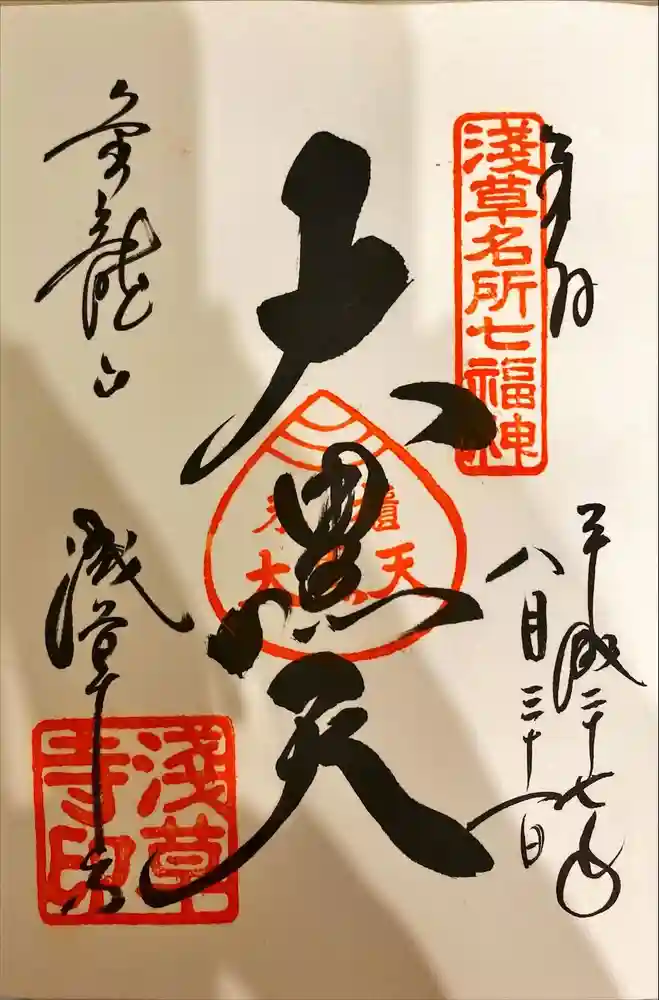 奉拝
淺草名所七福神
平成二十七年
八月三十一日
大黒天
大 天
金龍山
浅草寺
淺草
寺印